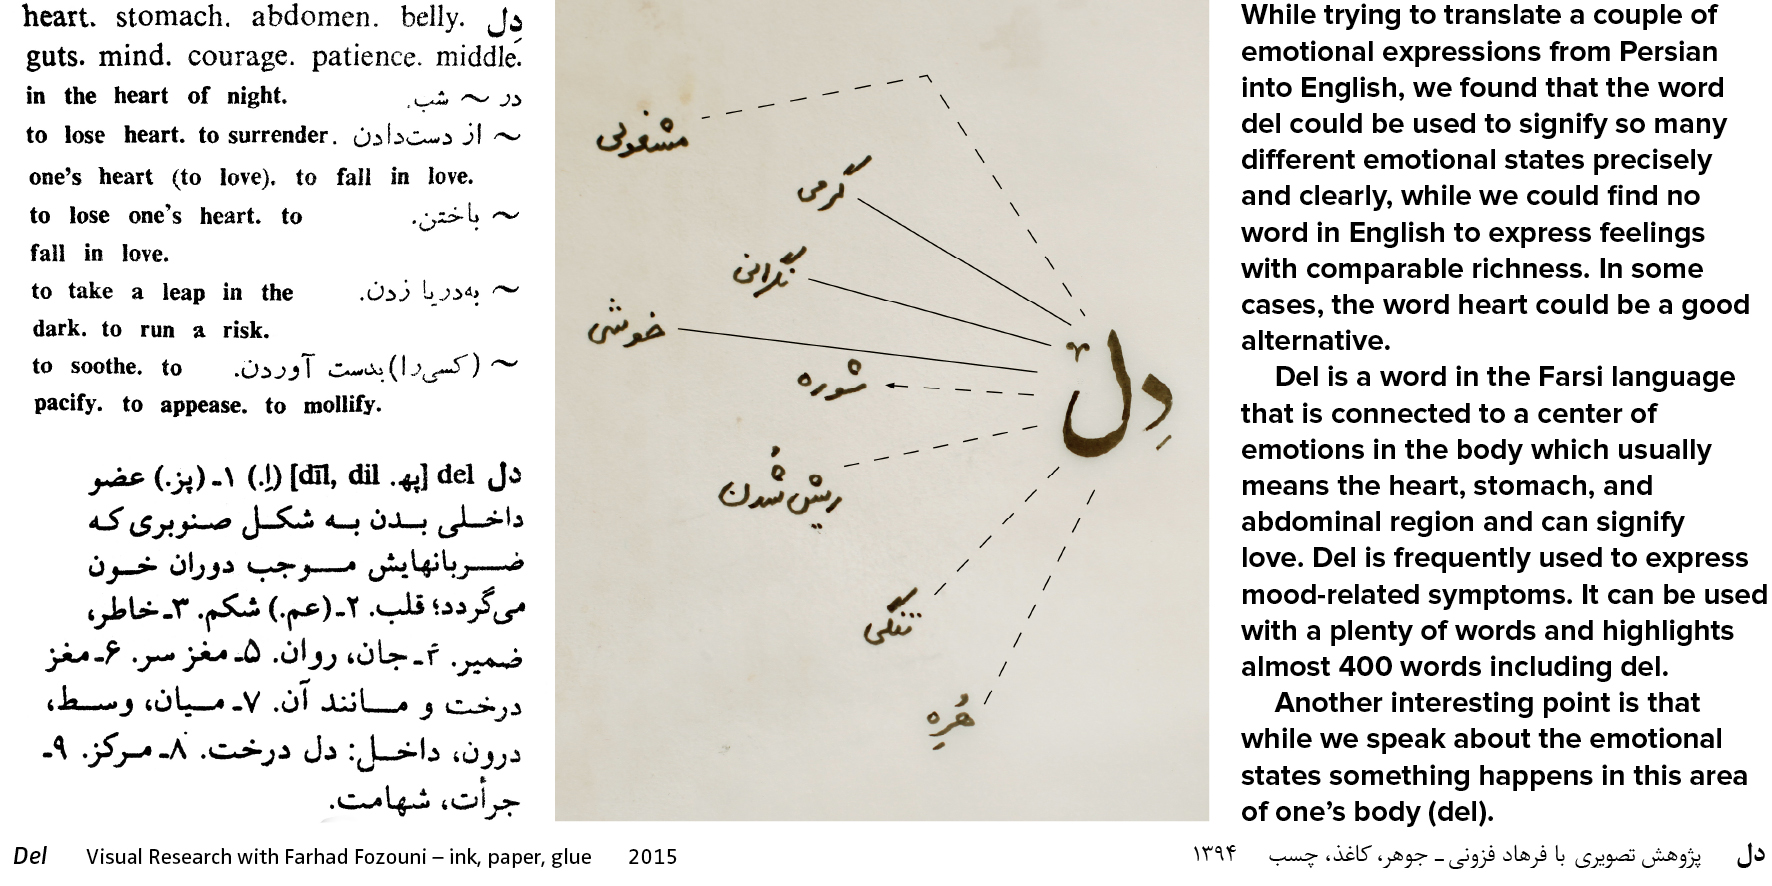 heart. stomach. abdomen. belly. دِل
guts. mind. courage. patience. middle.
in the heart of night. در ~ شب.
to lose heart. to surrender. از دست‌دادن ~
one's heart (to love). to fall in love.
to lose one's heart. to باختن. ~
fall in love.
to take a leap in the به‌دریا زدن. ~
dark. to run a risk.
to soothe. to (کسی‌را) بدست آوردن. ~
pacify. to appease. to mollify.
دل del [په. dīl, dil] (اِ.) ۱ـ (پز.) عضو
داخلی بدن به شکل صنوبری که
ضربانهایش موجب دوران خون
می‌گردد؛ قلب. ۲ـ (عم.) شکم. ۳ـ خاطر،
ضمیر. ۴ـ جان، روان. ۵ـ مغز سر. ۶ـ مغز
درخت و مانند آن. ۷ـ میان، وسط،
درون، داخل: دل درخت. ۸ـ مرکز. ۹ـ
جرأت، شهامت.
مشغولی
گرمی
نگرانی
خوشی
شوره
ریش شدن
تنگی
هُرّه
دِل
While trying to translate a couple of
emotional expressions from Persian
into English, we found that the word
del could be used to signify so many
different emotional states precisely
and clearly, while we could find no
word in English to express feelings
with comparable richness. In some
cases, the word heart could be a good
alternative.
Del is a word in the Farsi language
that is connected to a center of
emotions in the body which usually
means the heart, stomach, and
abdominal region and can signify
love. Del is frequently used to express
mood-related symptoms. It can be used
with a plenty of words and highlights
almost 400 words including del.
Another interesting point is that
while we speak about the emotional
states something happens in this area
of one’s body (del).
Del Visual Research with Farhad Fozouni – ink, paper, glue 2015
دل پژوهش تصویری با فرهاد فزونی ـ جوهر، کاغذ، چسب ۱۳۹۴